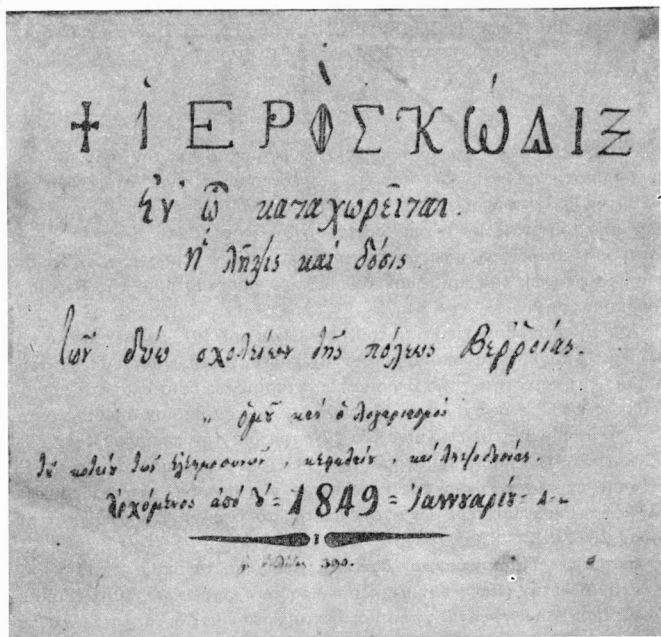 + ἹΕΡῸΣ ΚΏΔΙΞ
Ἐν ᾧ καταχωρεῖται.
ἡ λῆψις καὶ δόσις.
Τῶν δύω σχολείων τῆς πόλεως Βεῤῥοίας.
„ ὁμοῦ καὶ ὁ λογαριασμὸς
τοῦ κοτίου τῶν ἐλεημοσυνῶν, κεφαλαίου, καὶ
Ἀρχόμενος ἀπὸ = 1849 = Ἰαννουαρίου = 1 =
390.